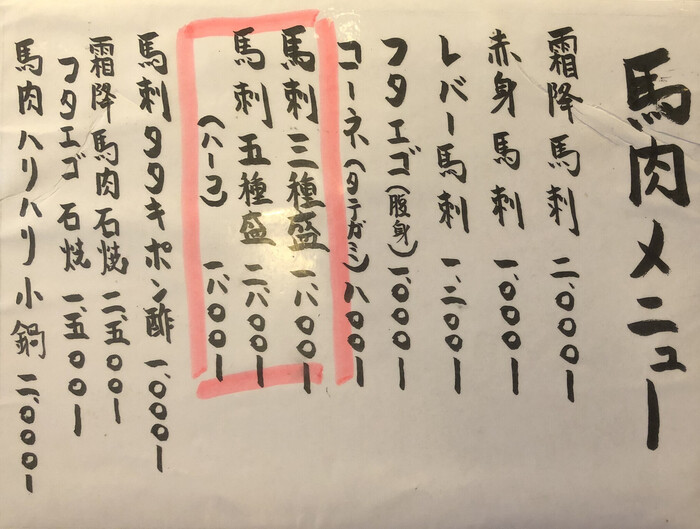 馬肉メニュー
霜降馬刺 二、〇〇〇ー
赤身馬刺 一、〇〇〇ー
レバー馬刺 一、二〇〇ー
フタエゴ(腹身) 一、〇〇〇ー
コーネ(タテガミ) 八〇〇ー
馬刺三種盛 一、八〇〇ー
馬刺五種盛 二、八〇〇ー
(ハーフ) 一、八〇〇ー
馬刺タタキポン酢 一、〇〇〇ー
霜降馬肉石焼 二、五〇〇ー
フタエゴ石焼 一、五〇〇ー
馬肉ハリハリ小鍋 二、〇〇〇ー